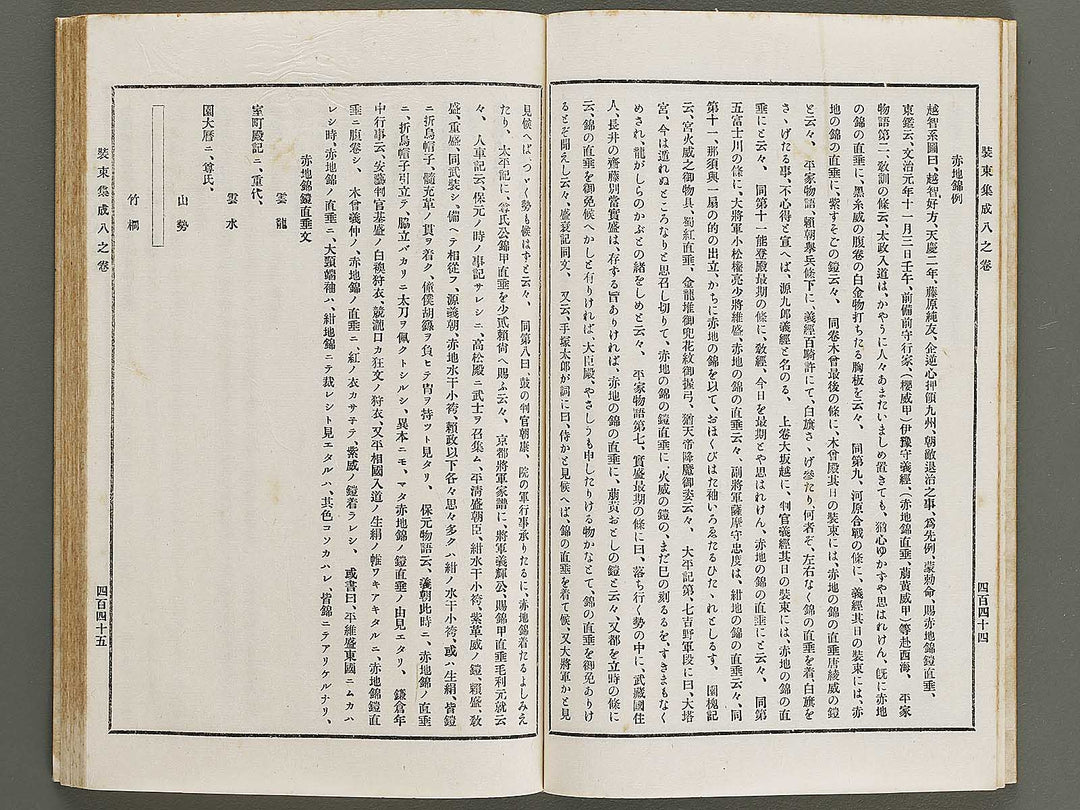 裝束集成八之卷
四百四十四
赤地錦例
越智系圖曰、越智好方、天慶二年、藤原純友、企逆心押領九州、朝敵退治之事、爲先例、蒙勅命、賜赤地錦鎧直垂、
東鑑云、文治元年十一月三日壬午、前備前守行家、(櫻威甲)伊豫守義經、(赤地錦直垂、萠黃威甲)等赴西海、　平家
物語第二、敎訓の條云、太政入道は、かやうに人々あまたいましめ置きても、猶心ゆかずや思はれけん、旣に赤地
の錦の直垂に、黑糸威の腹卷の白金物打ちたる胸板を云々、　同第九、河原合戰の條に、義經其日の裝束には、赤
地の錦の直垂に、紫すそごの鎧云々、　同卷木曾最後の條に、木曾殿其日の裝束には、赤地の錦の直垂唐綾威の鎧
と云々、　平家物語、賴朝舉兵條下に、義經百騎許にて、白旗さゝげ參たり何者ぞ、左右なく錦の直垂を着、白旗を
さゝげたる事、不心得と宣へば、源九郞義經と名のる、　上卷大坂越に、判官義經其日の裝束には、赤地の錦の直
垂にと云々、　同第十一能登殿最期の條に、敎經、今日を最期とや思はれけん、赤地の錦の直垂にと云々、　同第
五富士川の條に、大將軍小松權亮少將維盛、赤地の錦の直垂云々、副將軍薩摩守忠度は、紺地の錦の直垂云々、同
第十一、那須與一扇の的の出立、かちに赤地の錦を以て、おほくびはた袖いろゑたるひたゝれとしるす、　園槐記
云、宮火威之御物具、蜀紅直垂、金龍堆御兜花紋御握弓、猶天帝降魔御姿云々、　大平記第、七吉野軍段に曰、大塔
宮、今は遁れぬところなりと思召し切りて、赤地の錦の鎧直垂に、火威の鎧の、まだ巳の刻なるを、すきまもなく
めされ、龍がしらのかぶとの緒をしめと云々、　平家物語第七、實盛最期の條に曰、落ち行く勢の中に、武藏國住
人、長井の齋藤別當實盛は、存ずる旨ありければ、赤地の錦の直垂に、萠黃おどしの鎧と云々、又都を立時の條に
云、錦の直垂を御免候へかしと有りければ、大臣殿、やさしうも申したりける物かなとて、錦の直垂を御免ありけ
るとぞ聞えし云々、盛衰記同文、　又云、手塚太郞が詞に曰、侍かと見候へば、錦の直垂を着て候、又大將軍かと見
見候へば、つゞく勢も候はずと云々、　同第八曰、鼓の判官朝康、院の軍行事承りたるに、赤地錦着たるよしみえ
たり、太平記に、尊氏公錦甲直垂を少貳賴尙へ賜ふ云々、　京都將軍家譜に、將軍義輝公、賜錦甲直垂毛利元就云
々、　人車記云、保元ノ時ノ事記サレシニ、高松殿ニ武士ヲ召集ム、平清盛朝臣、紺水干小袴、紫革威ノ鎧、賴盛、敎
盛、重盛、同武裝シ、備ヘテ相從フ、源義朝、赤地水干小袴、賴政以下各々思々多クハ紺ノ水干小袴、或ハ生絹、皆鎧
ニ折烏帽子髓充革ノ貫ヲ着ク、傔僕胡籙ヲ負ヒテ冑ヲ持ツト見タリ、　保元物語云、義朝此時ニ、赤地錦ノ直垂
ニ、折烏帽子引立テ、脇立バカリニ太刀ヲ佩クトシルシ、異本ニモ、マタ赤地錦ノ鎧直垂ノ由見エタリ、　鎌倉年
中行事云、安藝判官基盛ノ白襖狩衣、競瀧口カ狂文ノ狩衣、又平相國入道ノ生絹ノ帷ヲキアキタルニ、赤地錦鎧直
垂ニ腹卷シ、　木曾義仲ノ、赤地錦ノ直垂ニ、紅ノ衣カサネテ、紫威ノ鎧着ラレシ、　或書曰、平維盛東國ニムカハ
レシ時、赤地錦ノ直垂ニ、大頸端袖ハ紺地錦ニテ裁レシト見エタルハ、其色コソカハレ、皆錦ニテアリケルナリ、
赤地錦鎧直垂文
雲龍
室町殿記ニ、重代、
雲水
園大曆ニ、尊氏、
山勢
竹桐
裝束集成八之卷
四百四十五